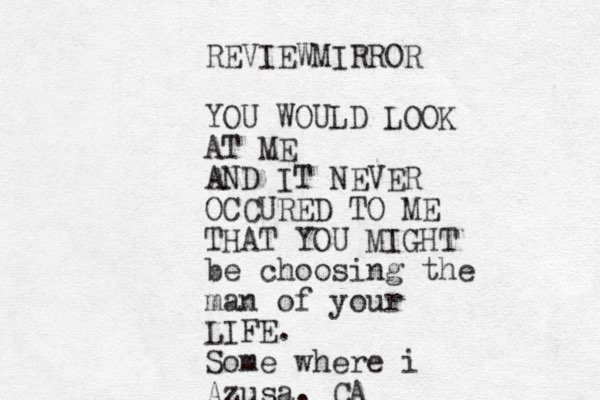 REVIEWMIRROR
YOU WOULD LOOK
AT ME
AND IT NEVER
OCCURED TO ME
THAT YOU MIGHT
be choosing the
man of your
LIFE.
Some where i
Azusa. CA